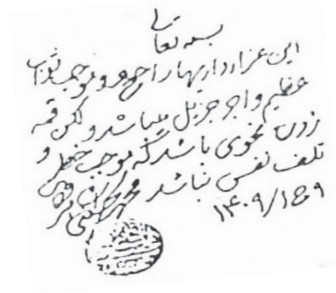 بسمه تعالی
این عزاداریها راجح و موجب ثواب
عظیم و اجر جزیل میباشد ولکن قمه
زدن بنحوی باشد که موجب خطر و
تلف نفس نباشد
۱۴۰۹/۱۶۹